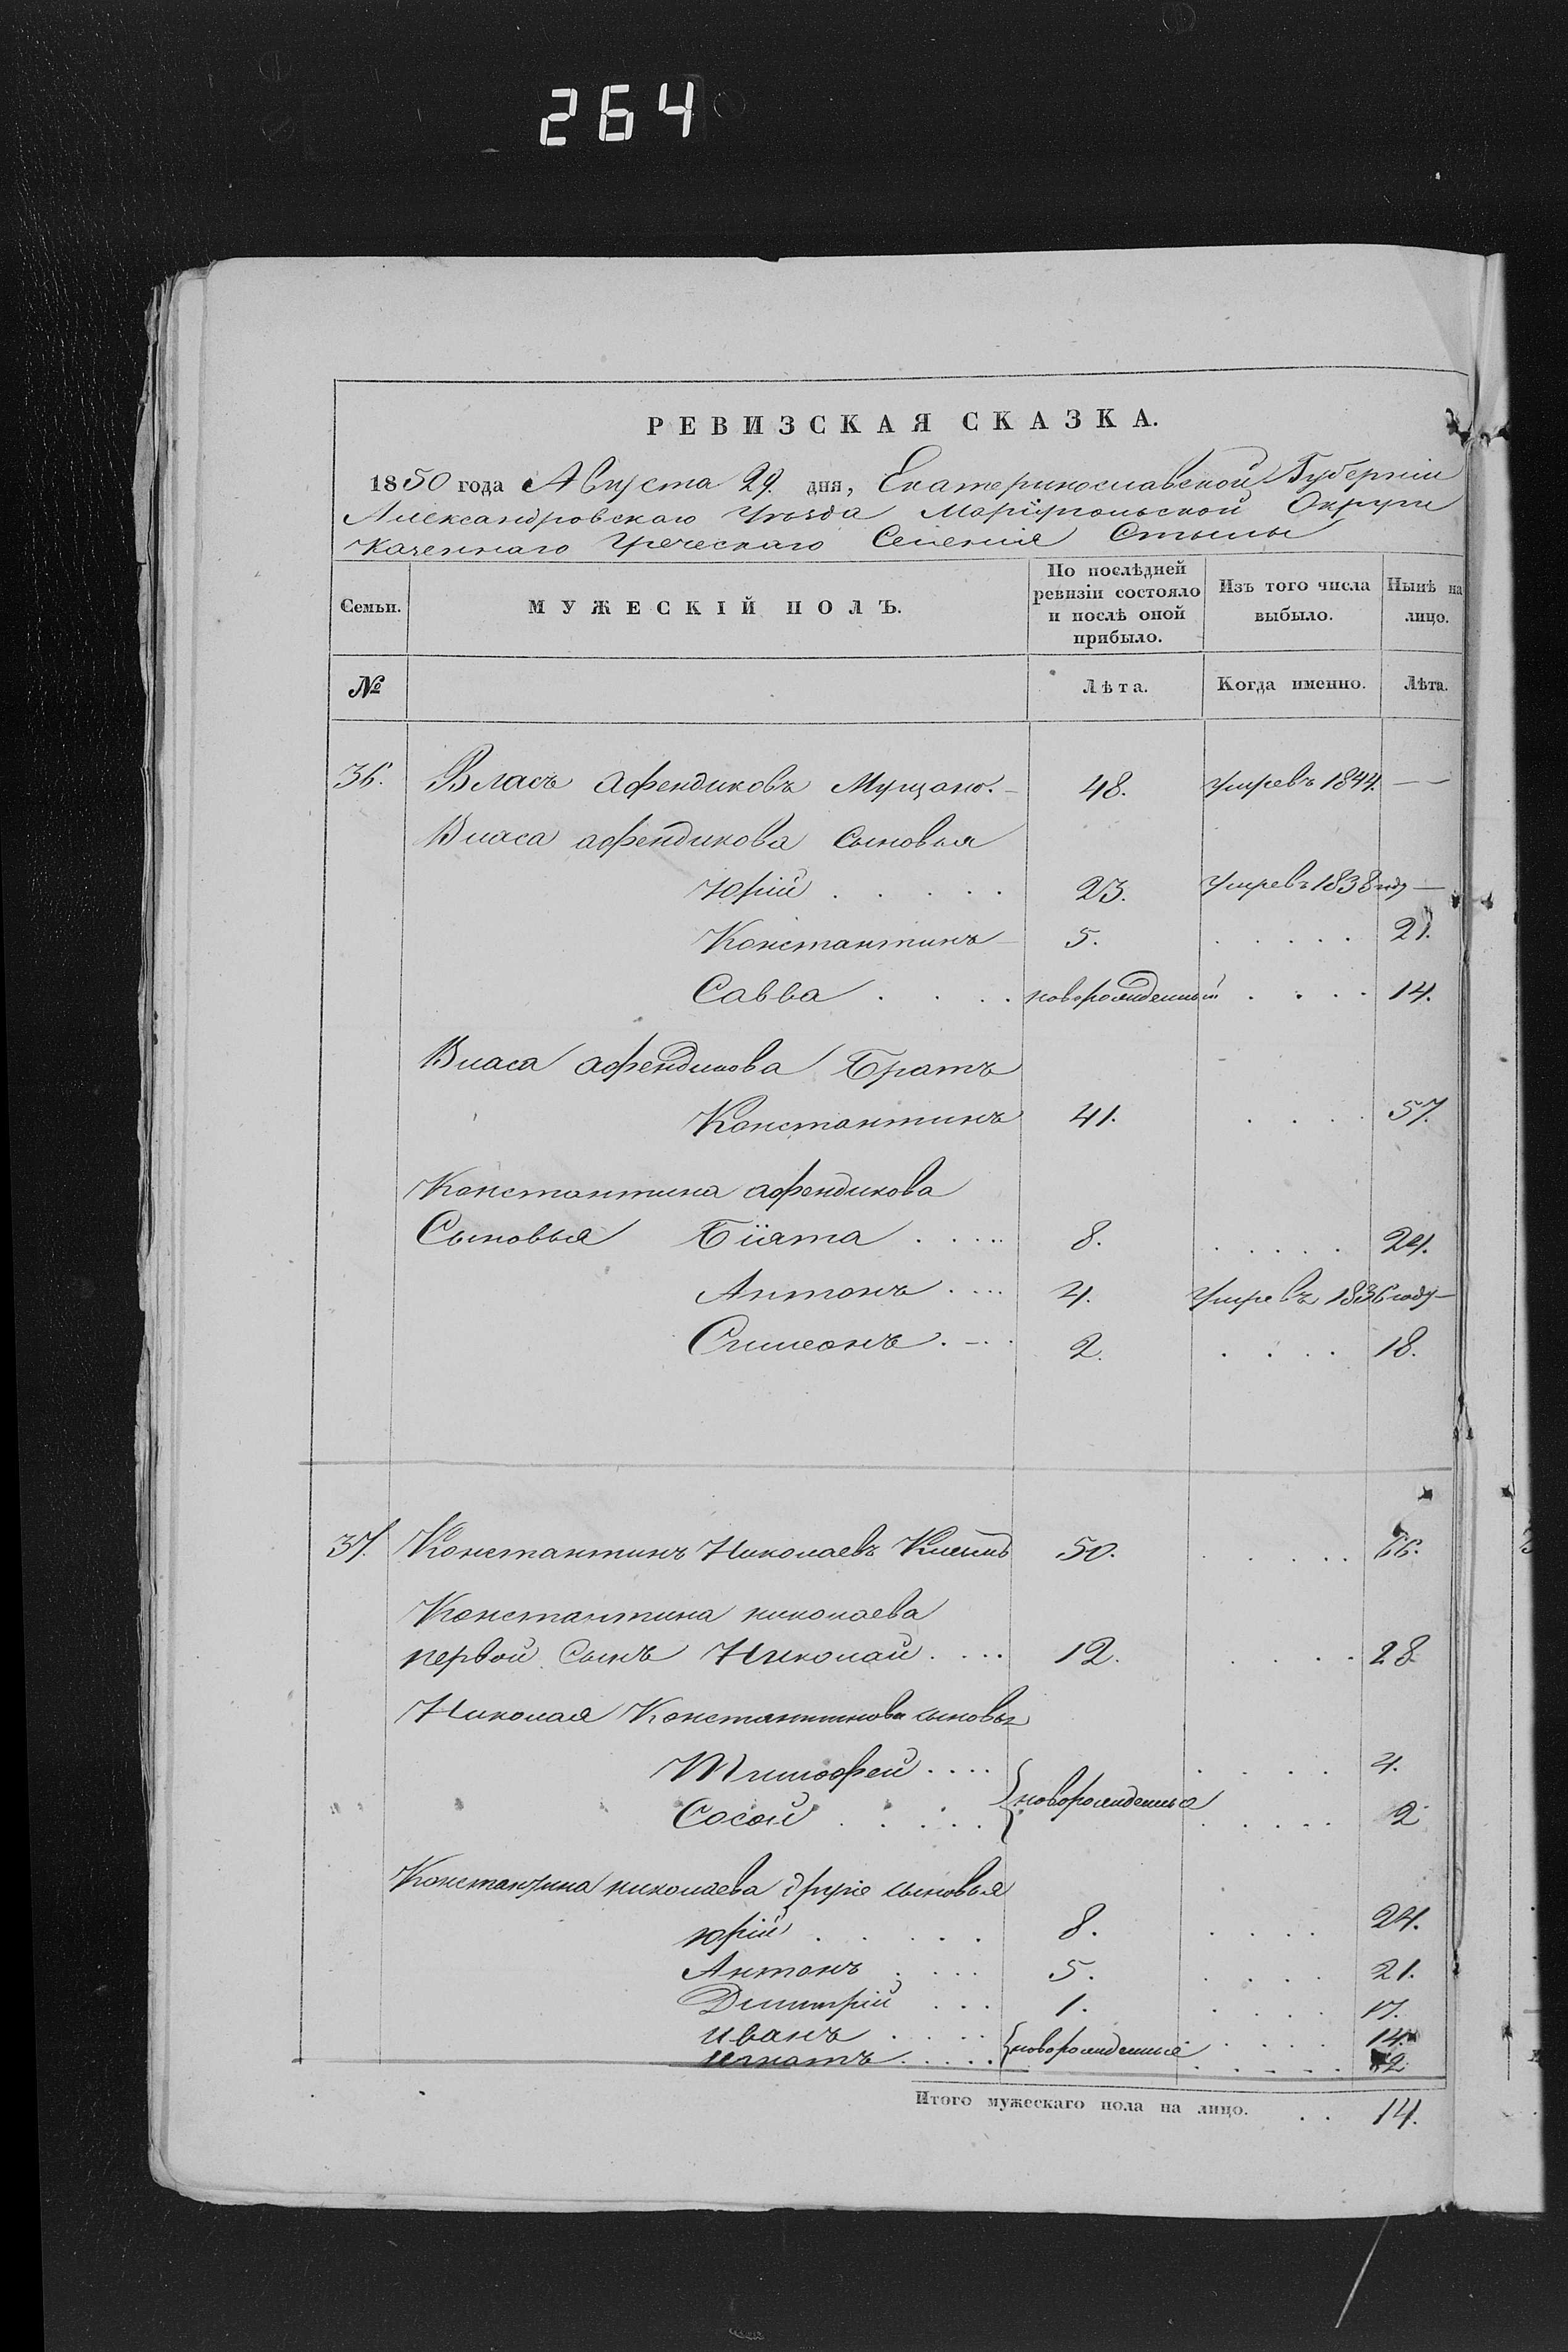 264
РЕВИЗСКАЯ СКАЗКА.
1850 года Августа 29. дня, Екатеринославской Губерніи
Александровскаго Уѣзда Маріупольской Округи
Казеннаго Греческаго Селенія Стылы
Семьи. МУЖЕСКІЙ ПОЛЪ. По послѣдней ревизіи состояло и послѣ оной прибыло. Изъ того числа выбыло. Нынѣ на лицо.
№ Лѣта. Когда именно. Лѣта.
36. Власъ Афендиковъ 48. умревъ 1844. —
Власа афендикова Сыновья
Юрій . . . . . 23. умревъ 1838 году —
Константинъ 5. . . . . . 21.
Савва . . . . новорожденный . . . . 14.
Власа афендикова Братъ
Константинъ 41. . . . . 57.
Константина афендикова
Сыновья Біята . . . . . 8. . . . . . 24.
Антонъ . . . . 4. умревъ 1836 году —
Симеонъ . – . . 2. . . . . 18.
37. Константинъ Николаевъ 50. . . . . . 66.
Константина николаева
первой сынъ Николай . . . . 12. . . . . 28
Николая Константинова сыновья
Тимофей . . . . новорожденные . . . . 4.
Сосой . . . . . . . . . . 2
Константина николаева другіе сыновья
юрій . . . . . 8. . . . . 24.
Антонъ . . . . 5. . . . . 21.
Димитрій . . . 1. . . . . 17.
иванъ . . . . новорожденные . . . . 14.
игнатъ . . . . . . . . . . 12
Итого мужескаго пола на лицо. . . 14.